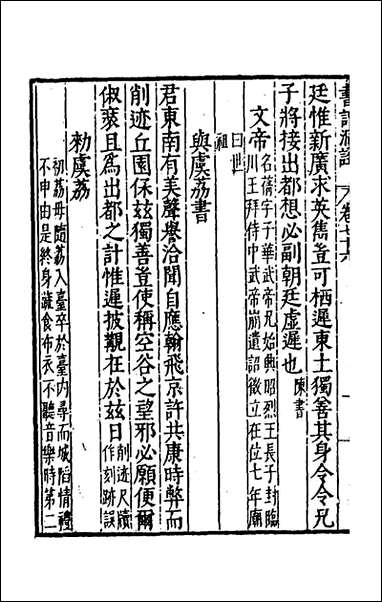 廷惟新廣求英雋豈可栖遲東土獨善其身今令兄
子將接出都想必副朝廷虛遲也陳書
文帝名蒨字子華武帝兄始興昭烈王長子封臨
川王拜侍中武帝崩遺詔徵立在位七年廟
曰世
祖
與虞荔書
君東南有美聲譽洽聞自應翰飛京許共康時弊而
削迹丘園保茲獨善豈使稱空谷之望邪必願便爾
俶裝且爲出都之計惟遲披覯在於茲日削迹尺牘
作刻跡誤
勑虞荔
初荔母隨荔入臺卒於臺内尋而城陷情禮
不申由是終身蔬食布衣不聽音樂時第二